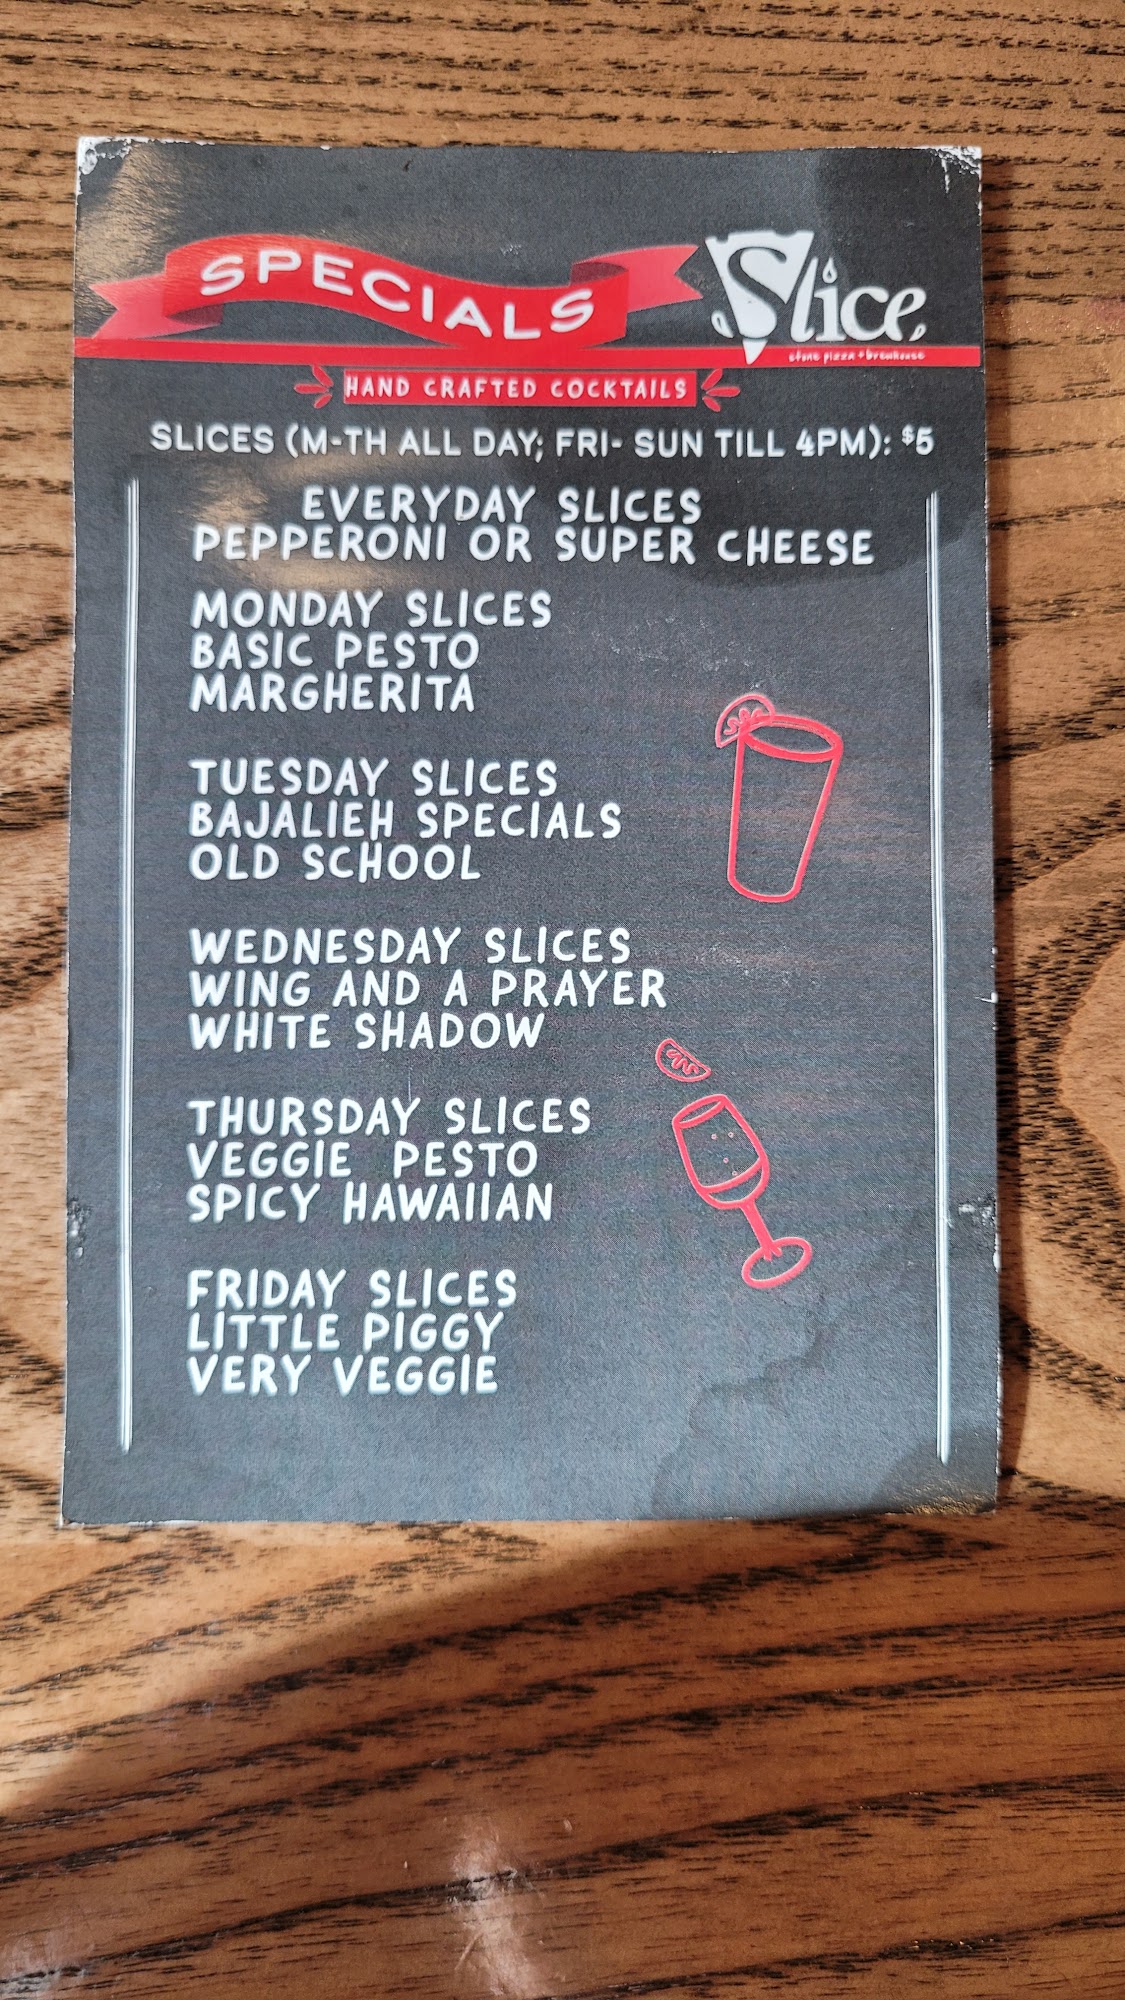 SPECIALS
Slice
stone pizza + brewhouse
HAND CRAFTED COCKTAILS
SLICES (M-TH ALL DAY; FRI- SUN TILL 4PM): $5
EVERYDAY SLICES
PEPPERONI OR SUPER CHEESE
MONDAY SLICES
BASIC PESTO
MARGHERITA
TUESDAY SLICES
BAJALIEH SPECIALS
OLD SCHOOL
WEDNESDAY SLICES
WING AND A PRAYER
WHITE SHADOW
THURSDAY SLICES
VEGGIE PESTO
SPICY HAWAIIAN
FRIDAY SLICES
LITTLE PIGGY
VERY VEGGIE